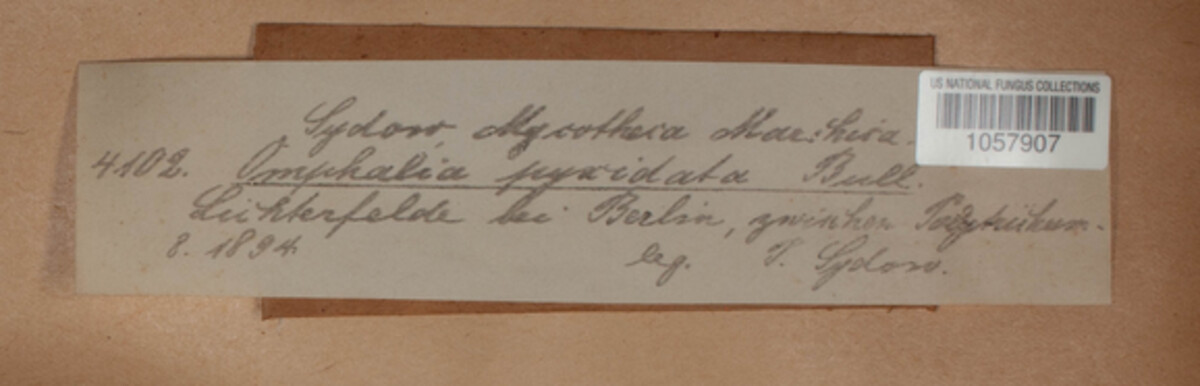 US NATIONAL FUNGUS COLLECTIONS
1057907
Sydow, Mycotheca Marchica.
4102. Omphalia pyxidata Bull.
Lichterfelde bei Berlin, zwischen Polytrichum.
8. 1894. leg. P. Sydow.